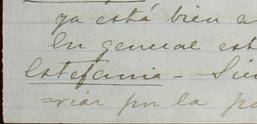 ya está bien a
En general est
Estefania - Sier
viar por la pa